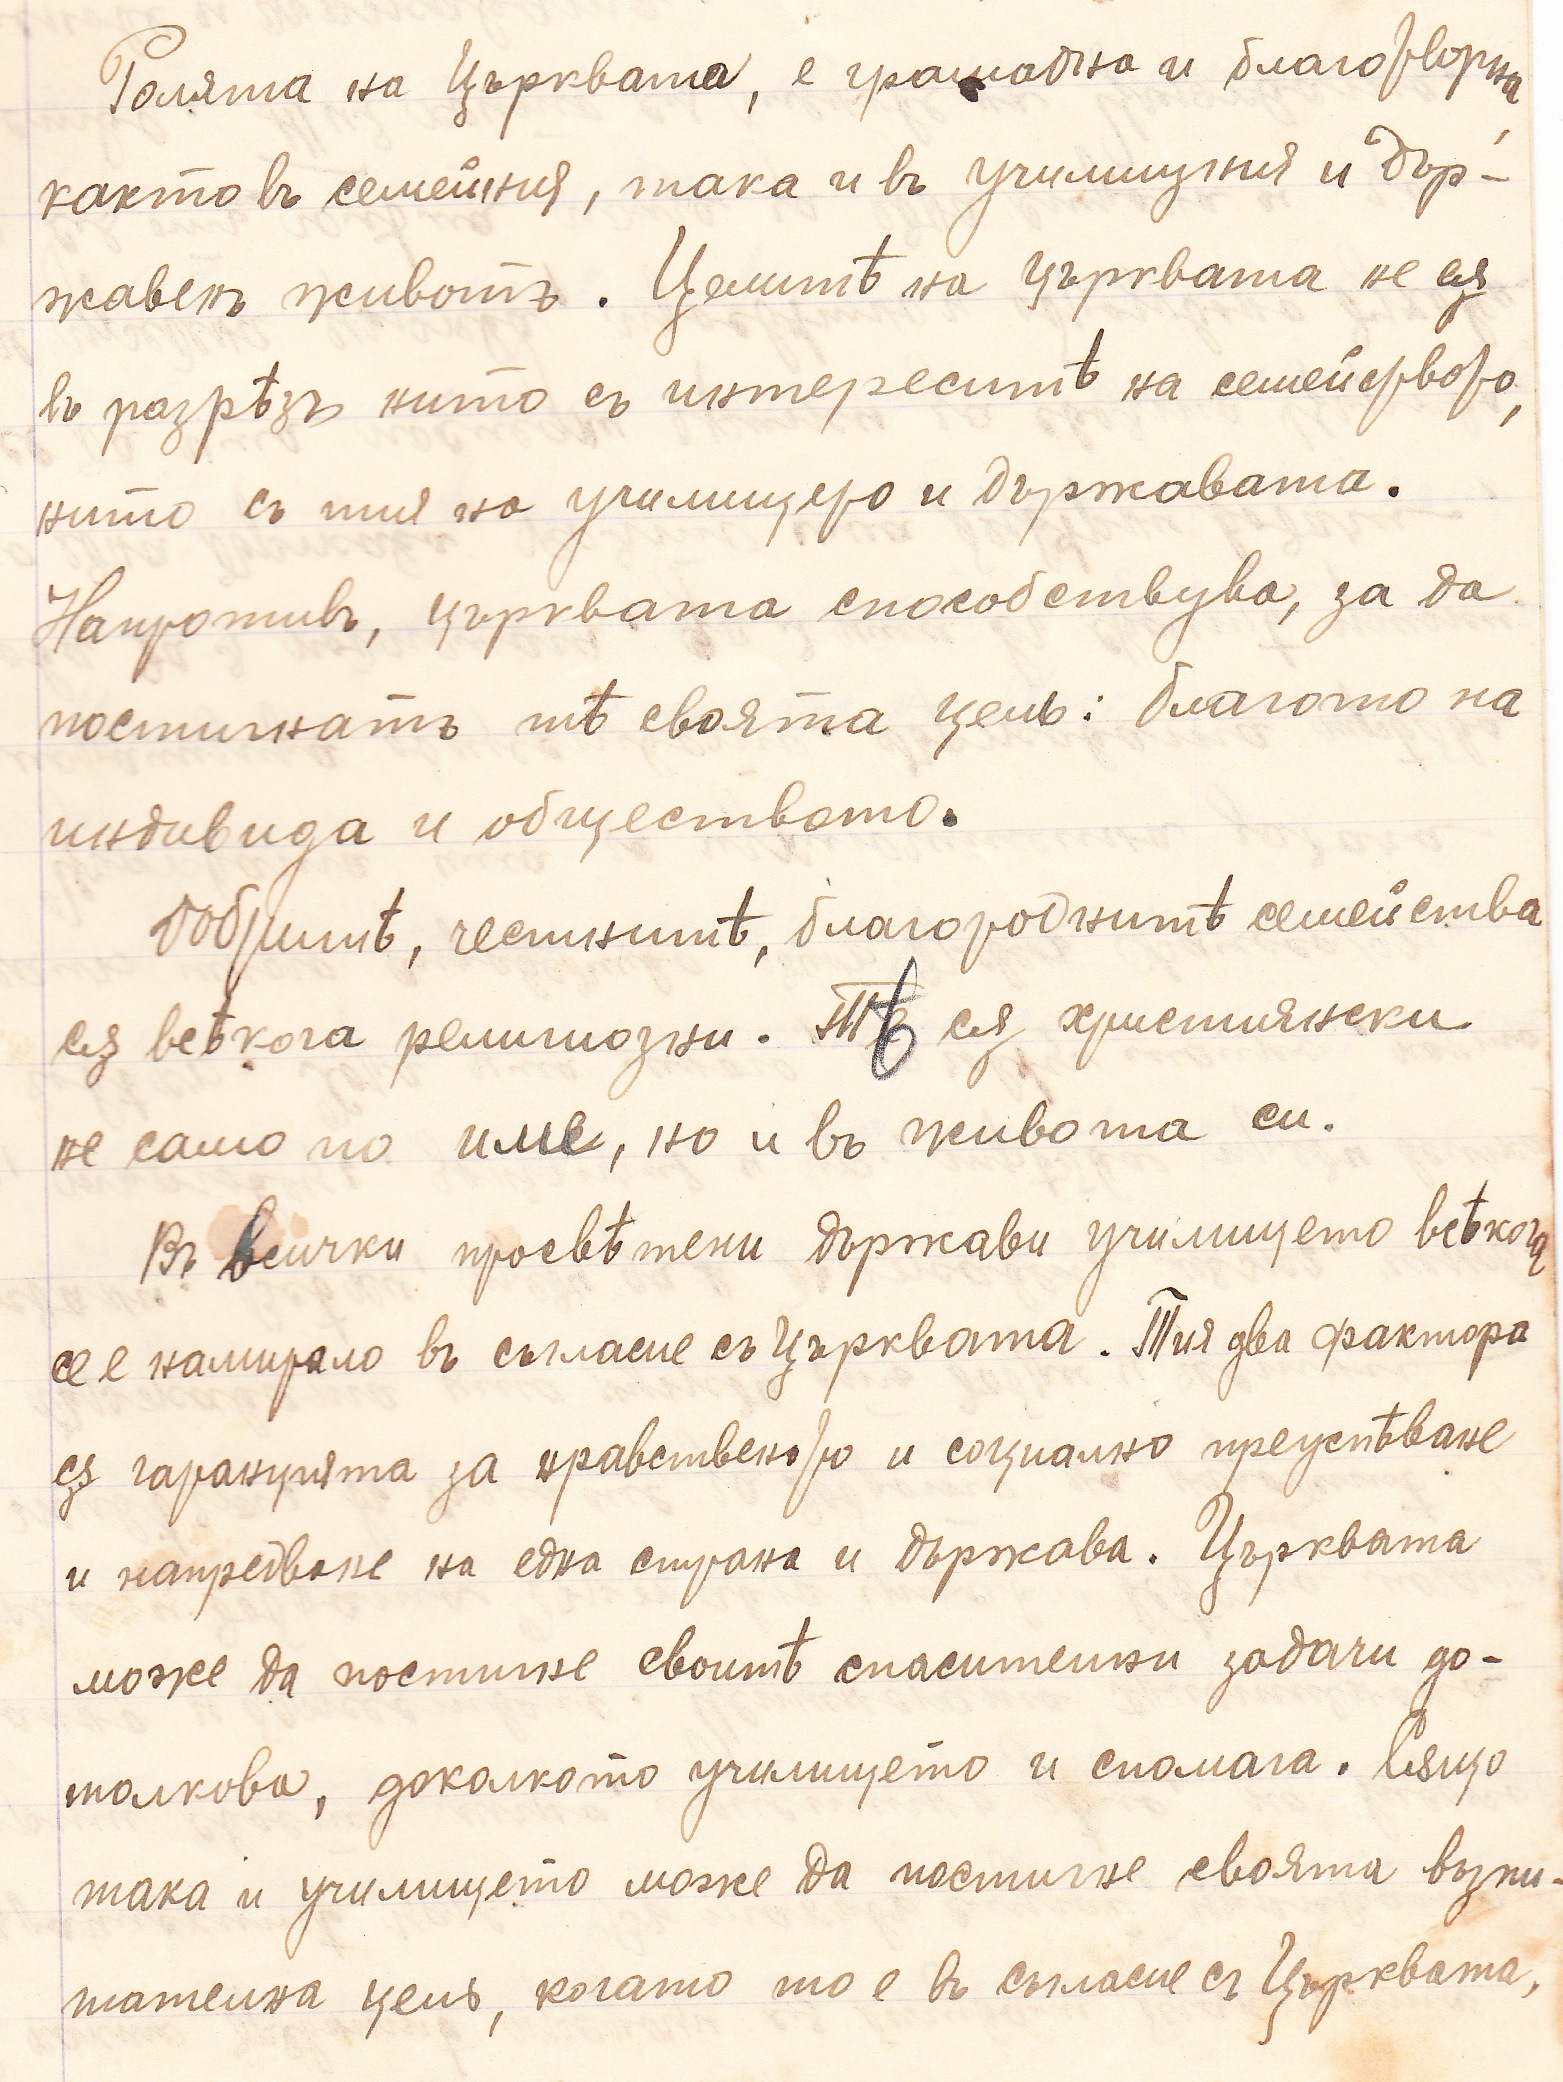 Ролята на Църквата, е грамадна и благотворна,
както въ семейния, така и въ училищния и Дър-
жавенъ животъ. Целитѣ на църквата не сѫ
въ разрѣзъ нито съ интереситѣ на семейството,
нито съ тия на училището и държавата.
Напротивъ, църквата способствува, за да
постигнатъ тѣ своята цель: благото на
индивида и обществото.
Добритѣ, честнитѣ, благороднитѣ семейства
сѫ всѣкога религиозни. Тѣ сѫ християнски
не само по име, но и въ живота си.
Въ всички просвѣтени държави училището всѣкога
се е намирало въ съгласие съ Църквата. Тия два фактора
сѫ гаранцията за нравствено то и социално преуспѣване
и напредване на една страна и държава. Църквата
може да постигне своитѣ спасителни задачи до-
толкова, доколкото училището и спомага. Сѫщо
така и училището може да постигне своята възпи-
тателна цель, когато то е въ съгласие съ Църквата,